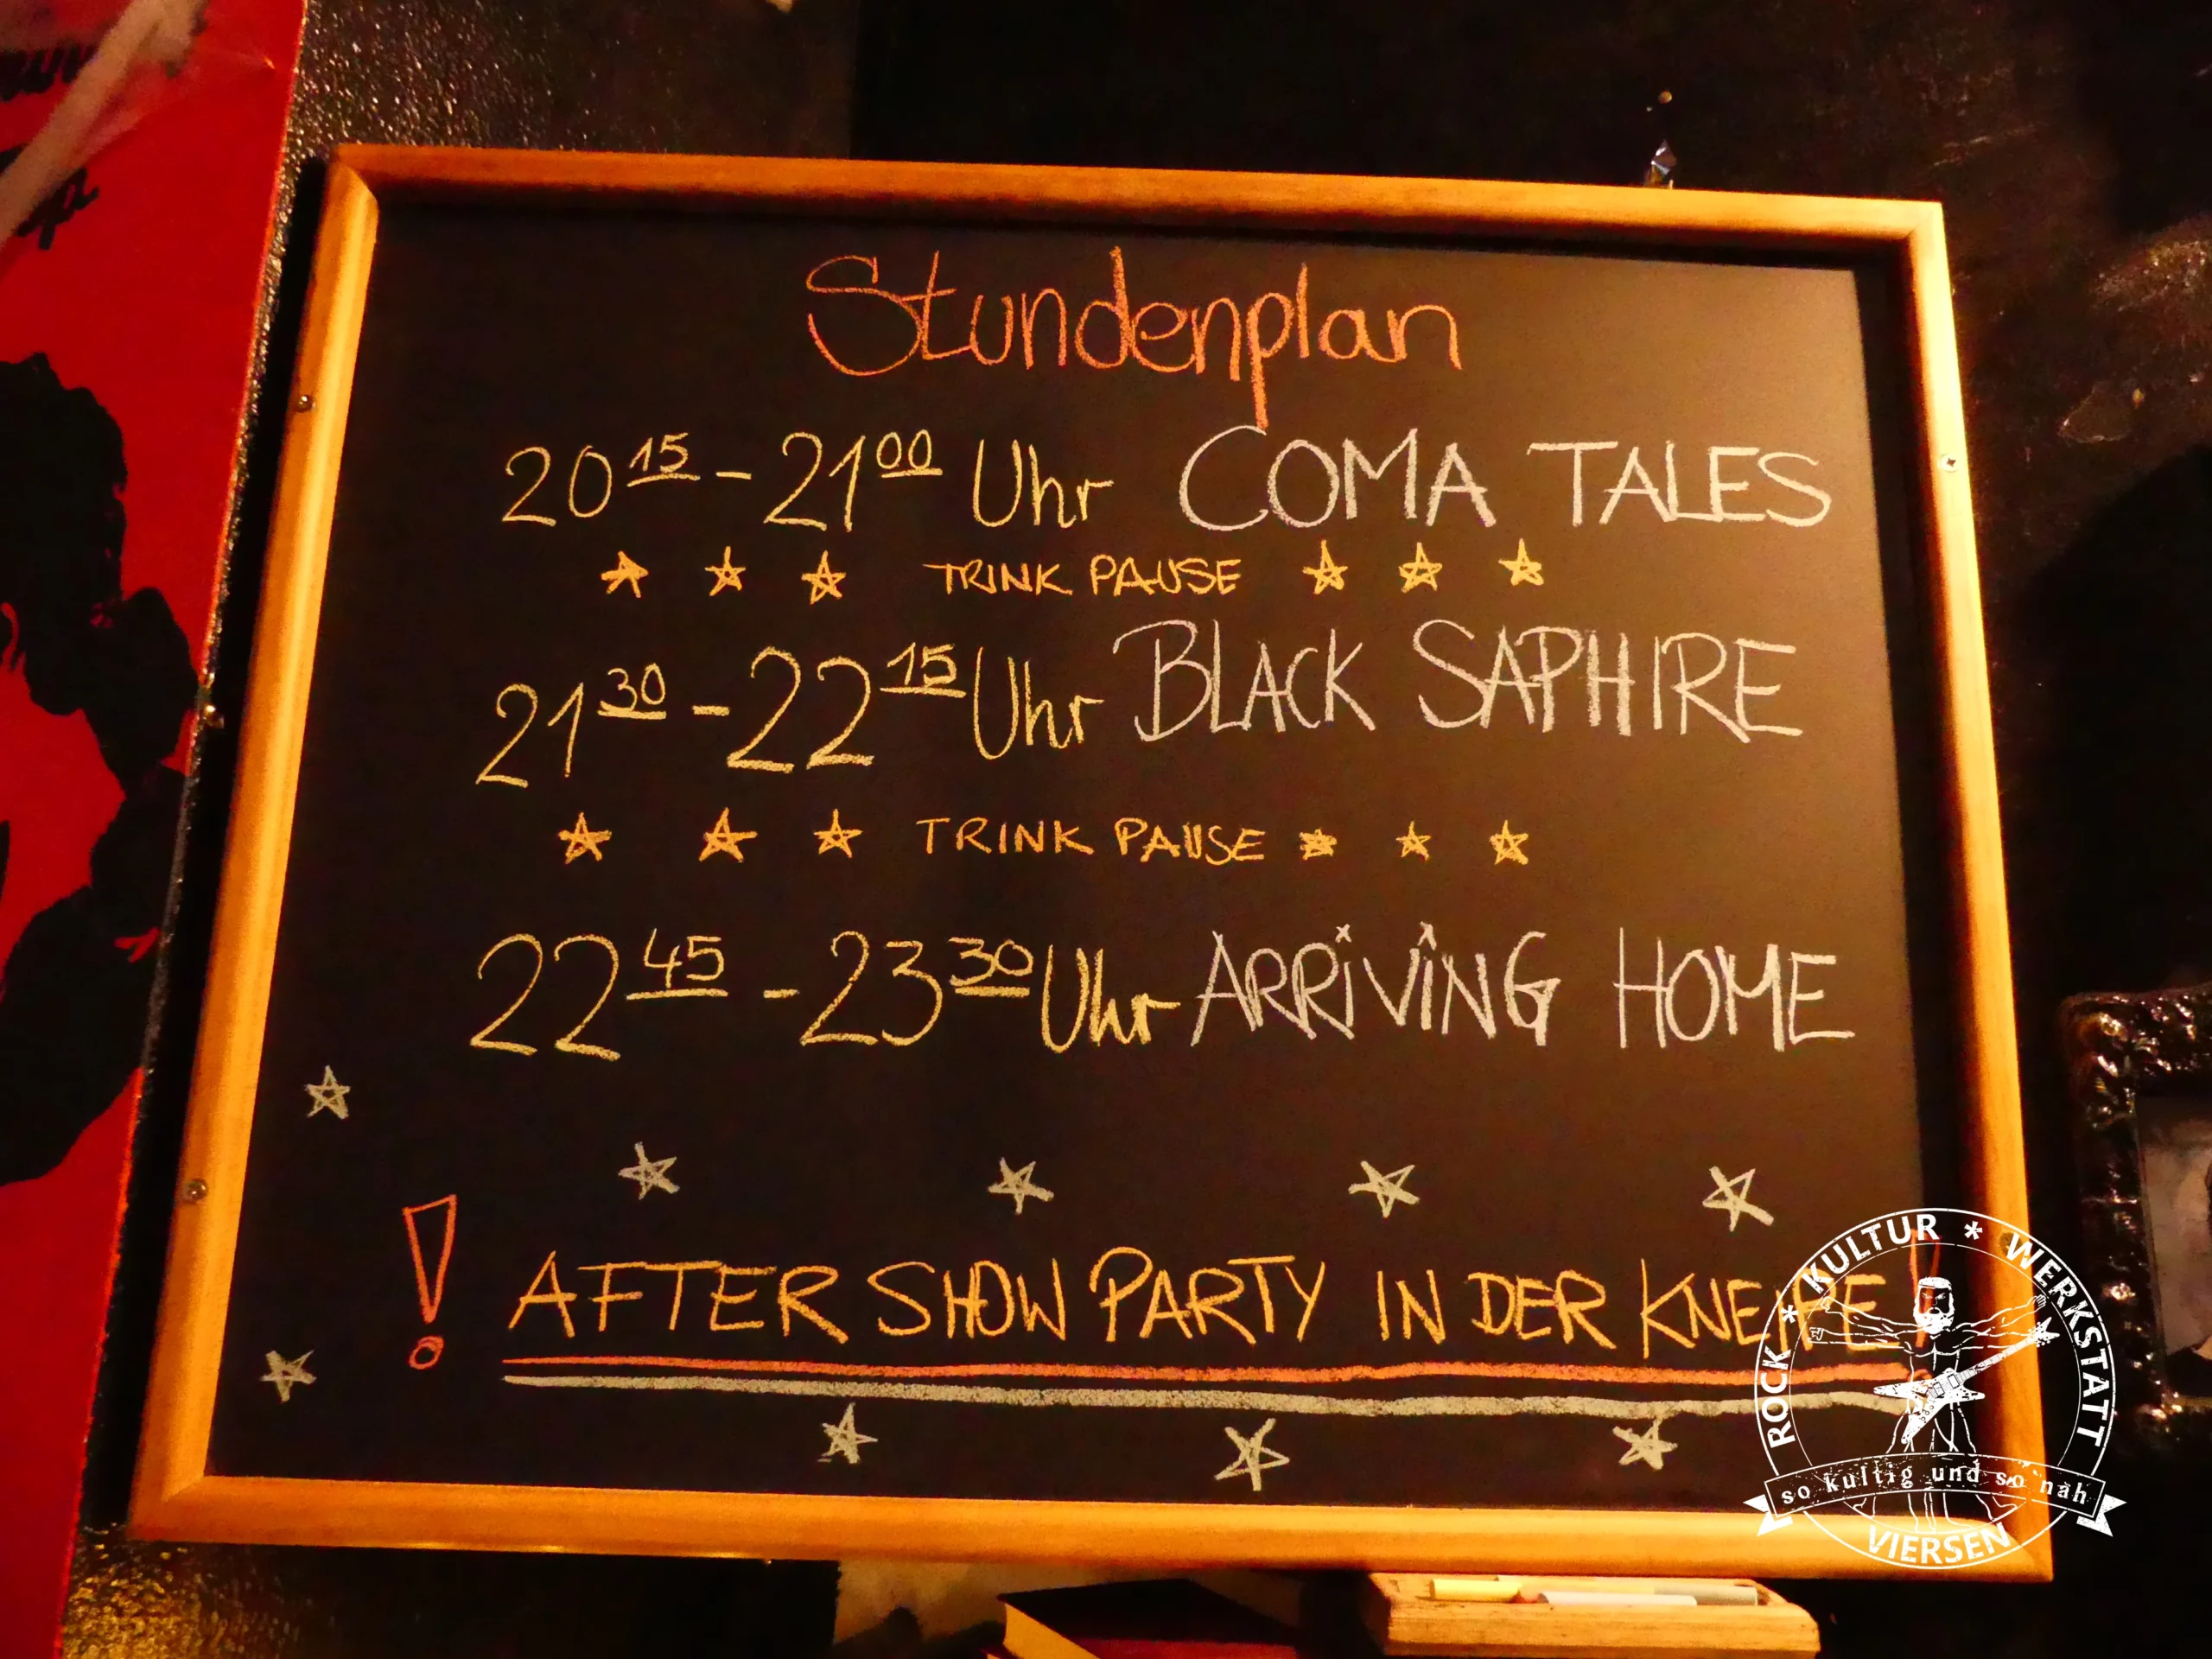 Stundenplan
20 15 - 21 00 Uhr COMA TALES
TRINK PAUSE
21 30 - 22 15 Uhr BLACK SAPHIRE
TRINK PAUSE
22 45 - 23 30 Uhr ARRiViNG HOME
! AFTER SHOW PARTY IN DER KNEIPE !
ROCK * KULTUR * WERKSTATT
so kultig und so nah
VIERSEN